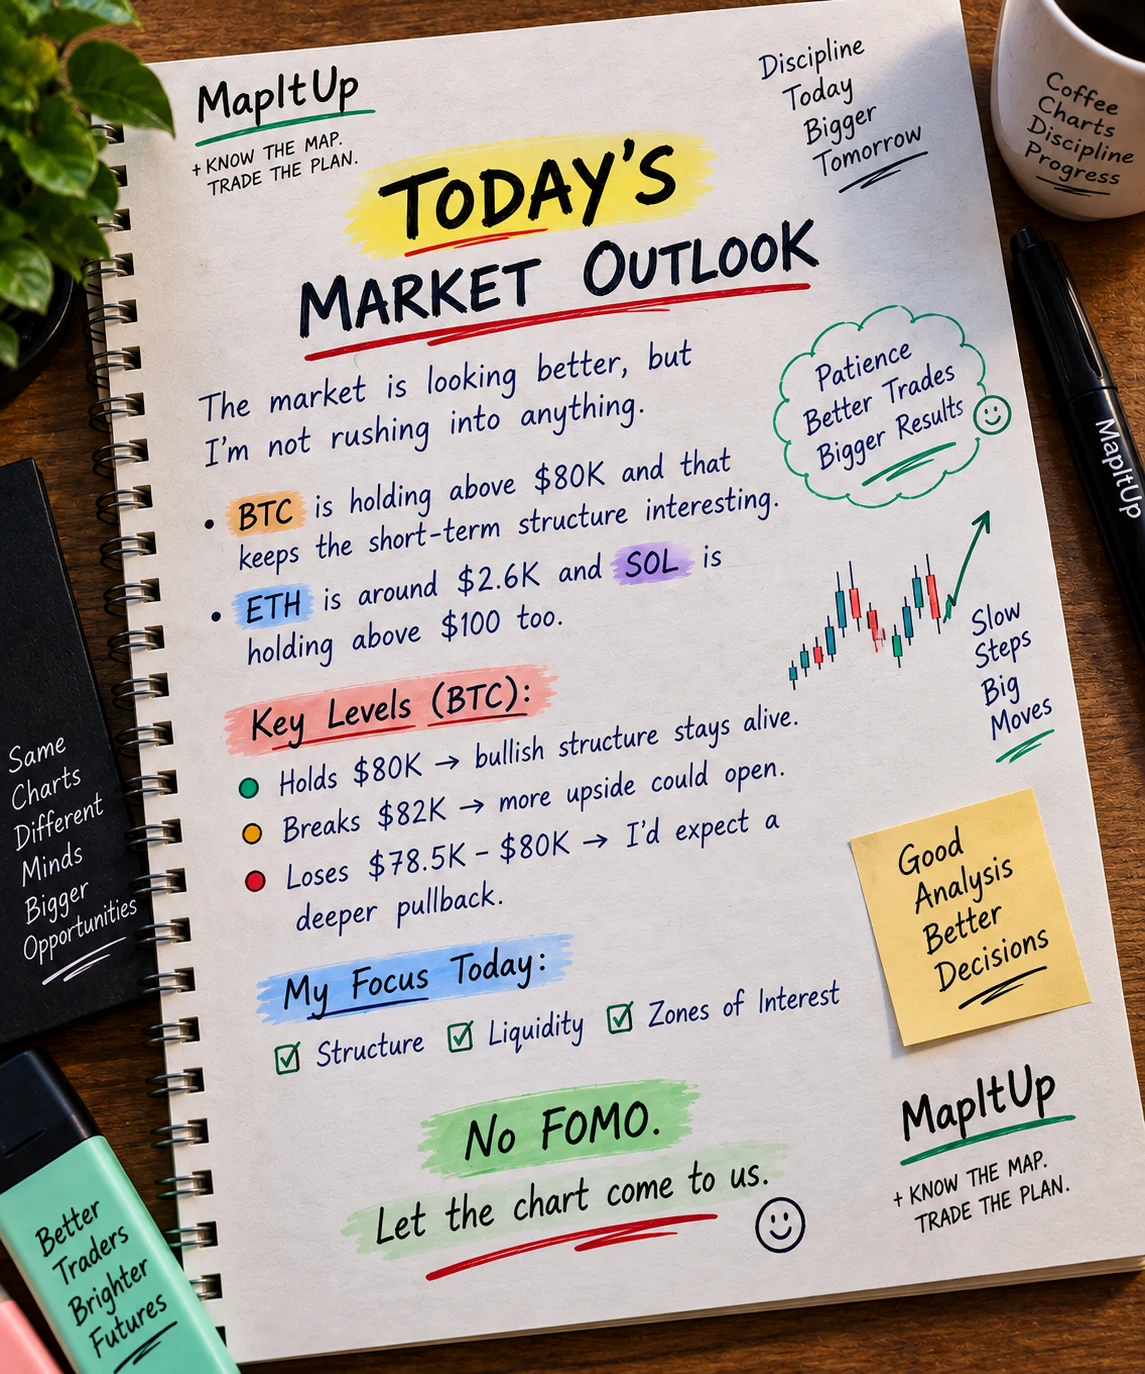 MapItUp
+ KNOW THE MAP.
TRADE THE PLAN.
Discipline
Today
Bigger
Tomorrow
Coffee
Charts
Discipline
Progress
TODAY'S
MARKET OUTLOOK
The market is looking better, but
I'm not rushing into anything.
Patience
Better Trades
Bigger Results
MapItUp
• BTC is holding above $80K and that
keeps the short-term structure interesting.
• ETH is around $2.6K and SOL is
holding above $100 too.
Slow
Steps
Big
Moves
Key Levels (BTC):
Holds $80K → bullish structure stays alive.
Breaks $82K → more upside could open.
Loses $78.5K - $80K → I'd expect a
deeper pullback.
Same
Charts
Different
Minds
Bigger
Opportunities
Good
Analysis
Better
Decisions
My Focus Today:
☑ Structure ☑ Liquidity ☑ Zones of Interest
No FOMO.
Let the chart come to us.
MapItUp
+ KNOW THE MAP.
TRADE THE PLAN.
Better
Traders
Brighter
Futures